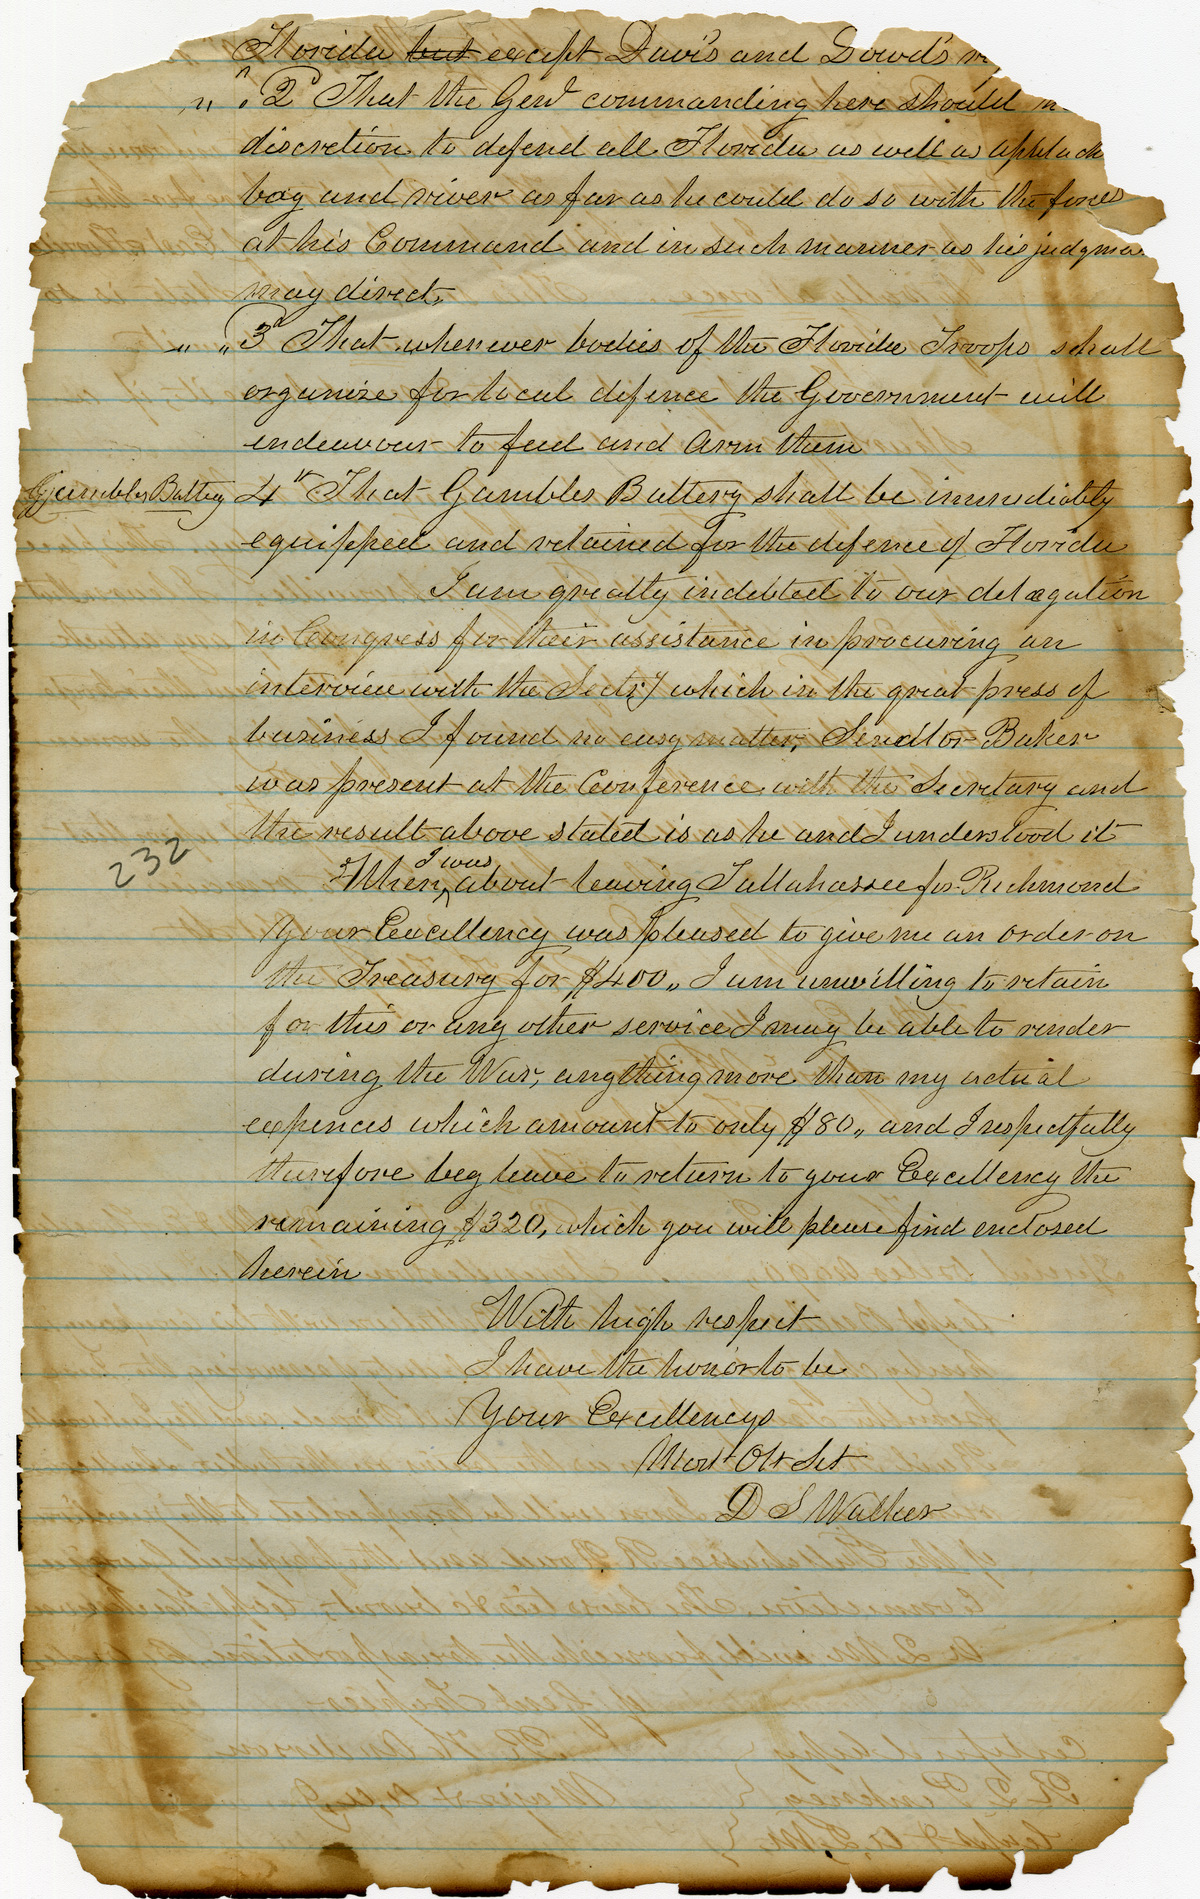 Florida but except Davis and Dowd's
" " 2d That the Genl commanding here should
discretion to defend all Florida as well as
bay and river as far as he could do so with the forces
at his Command and in such manner as his judgme
may direct,
" " 3d That whenever bodies of the Florida Troops shall
organize for local defence the Government will
endeavour to feed and Arm them
Gambles Battery 4th That Gambles Battery shall be immediatly
equipped and retained for the defence of Florida
I am greatly indebted to our delegation
in Congress for their assistance in procuring an
interview with the Secty which in the great press of
business I found no easy matter, Senator Baker
was present at the Conference with the Secretary and
the result above stated is as he and I understood it
232
When I was about leaving Tallahassee for Richmond
Your Excellency was pleased to give me an order on
the Treasury for $400,, I am unwilling to retain
for this or any other service I may be able to render
during the War, anything more than my actual
expences which amount to only $80,, and I respectfully
therefore beg leave to return to your Excellency the
remaining $320, which you will please find enclosed
herein
With high respect
I have the honor to be
Your Excellencys
Most Obt Svt
D S Walker